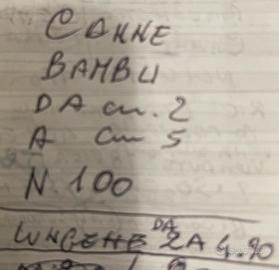 CANNE
BAMBU
DA cm. 2
A cm 5
N. 100
LUNGEHE DA 2 A 4.90